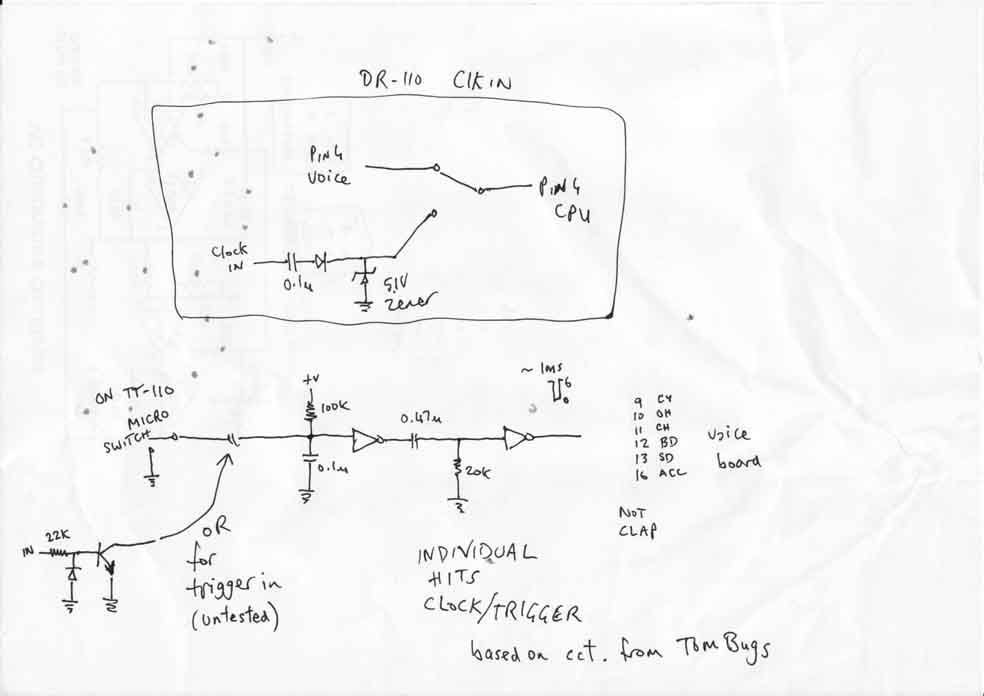 DR-110 CLKIN
PIN 4
VOICE
PIN 4
CPU
Clock
IN
0.1u
5.1V
Zener
ON TT-110
MICRO
SWITCH
+V
100K
0.1u
0.47u
20K
~ 1ms
6
0
9 CY
10 OH
11 CH
12 BD
13 SD
16 ACC
voice
board
NOT
CLAP
IN
22K
OR
for
trigger in
(untested)
INDIVIDUAL
HITS
CLOCK/TRIGGER
based on cct. from Tom Bugs